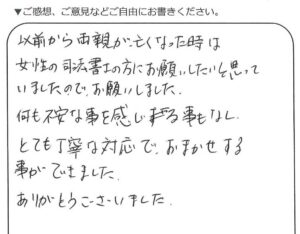 ▼ご感想、ご意見などご自由にお書きください。
以前から両親が亡くなった時は
女性の司法書士の方にお願いしたいと思って
いましたので、お願いしました。
何も不安な事を感じすぎる事もなし
とても丁寧な対応で、おまかせする
事ができました。
ありがとうございました。